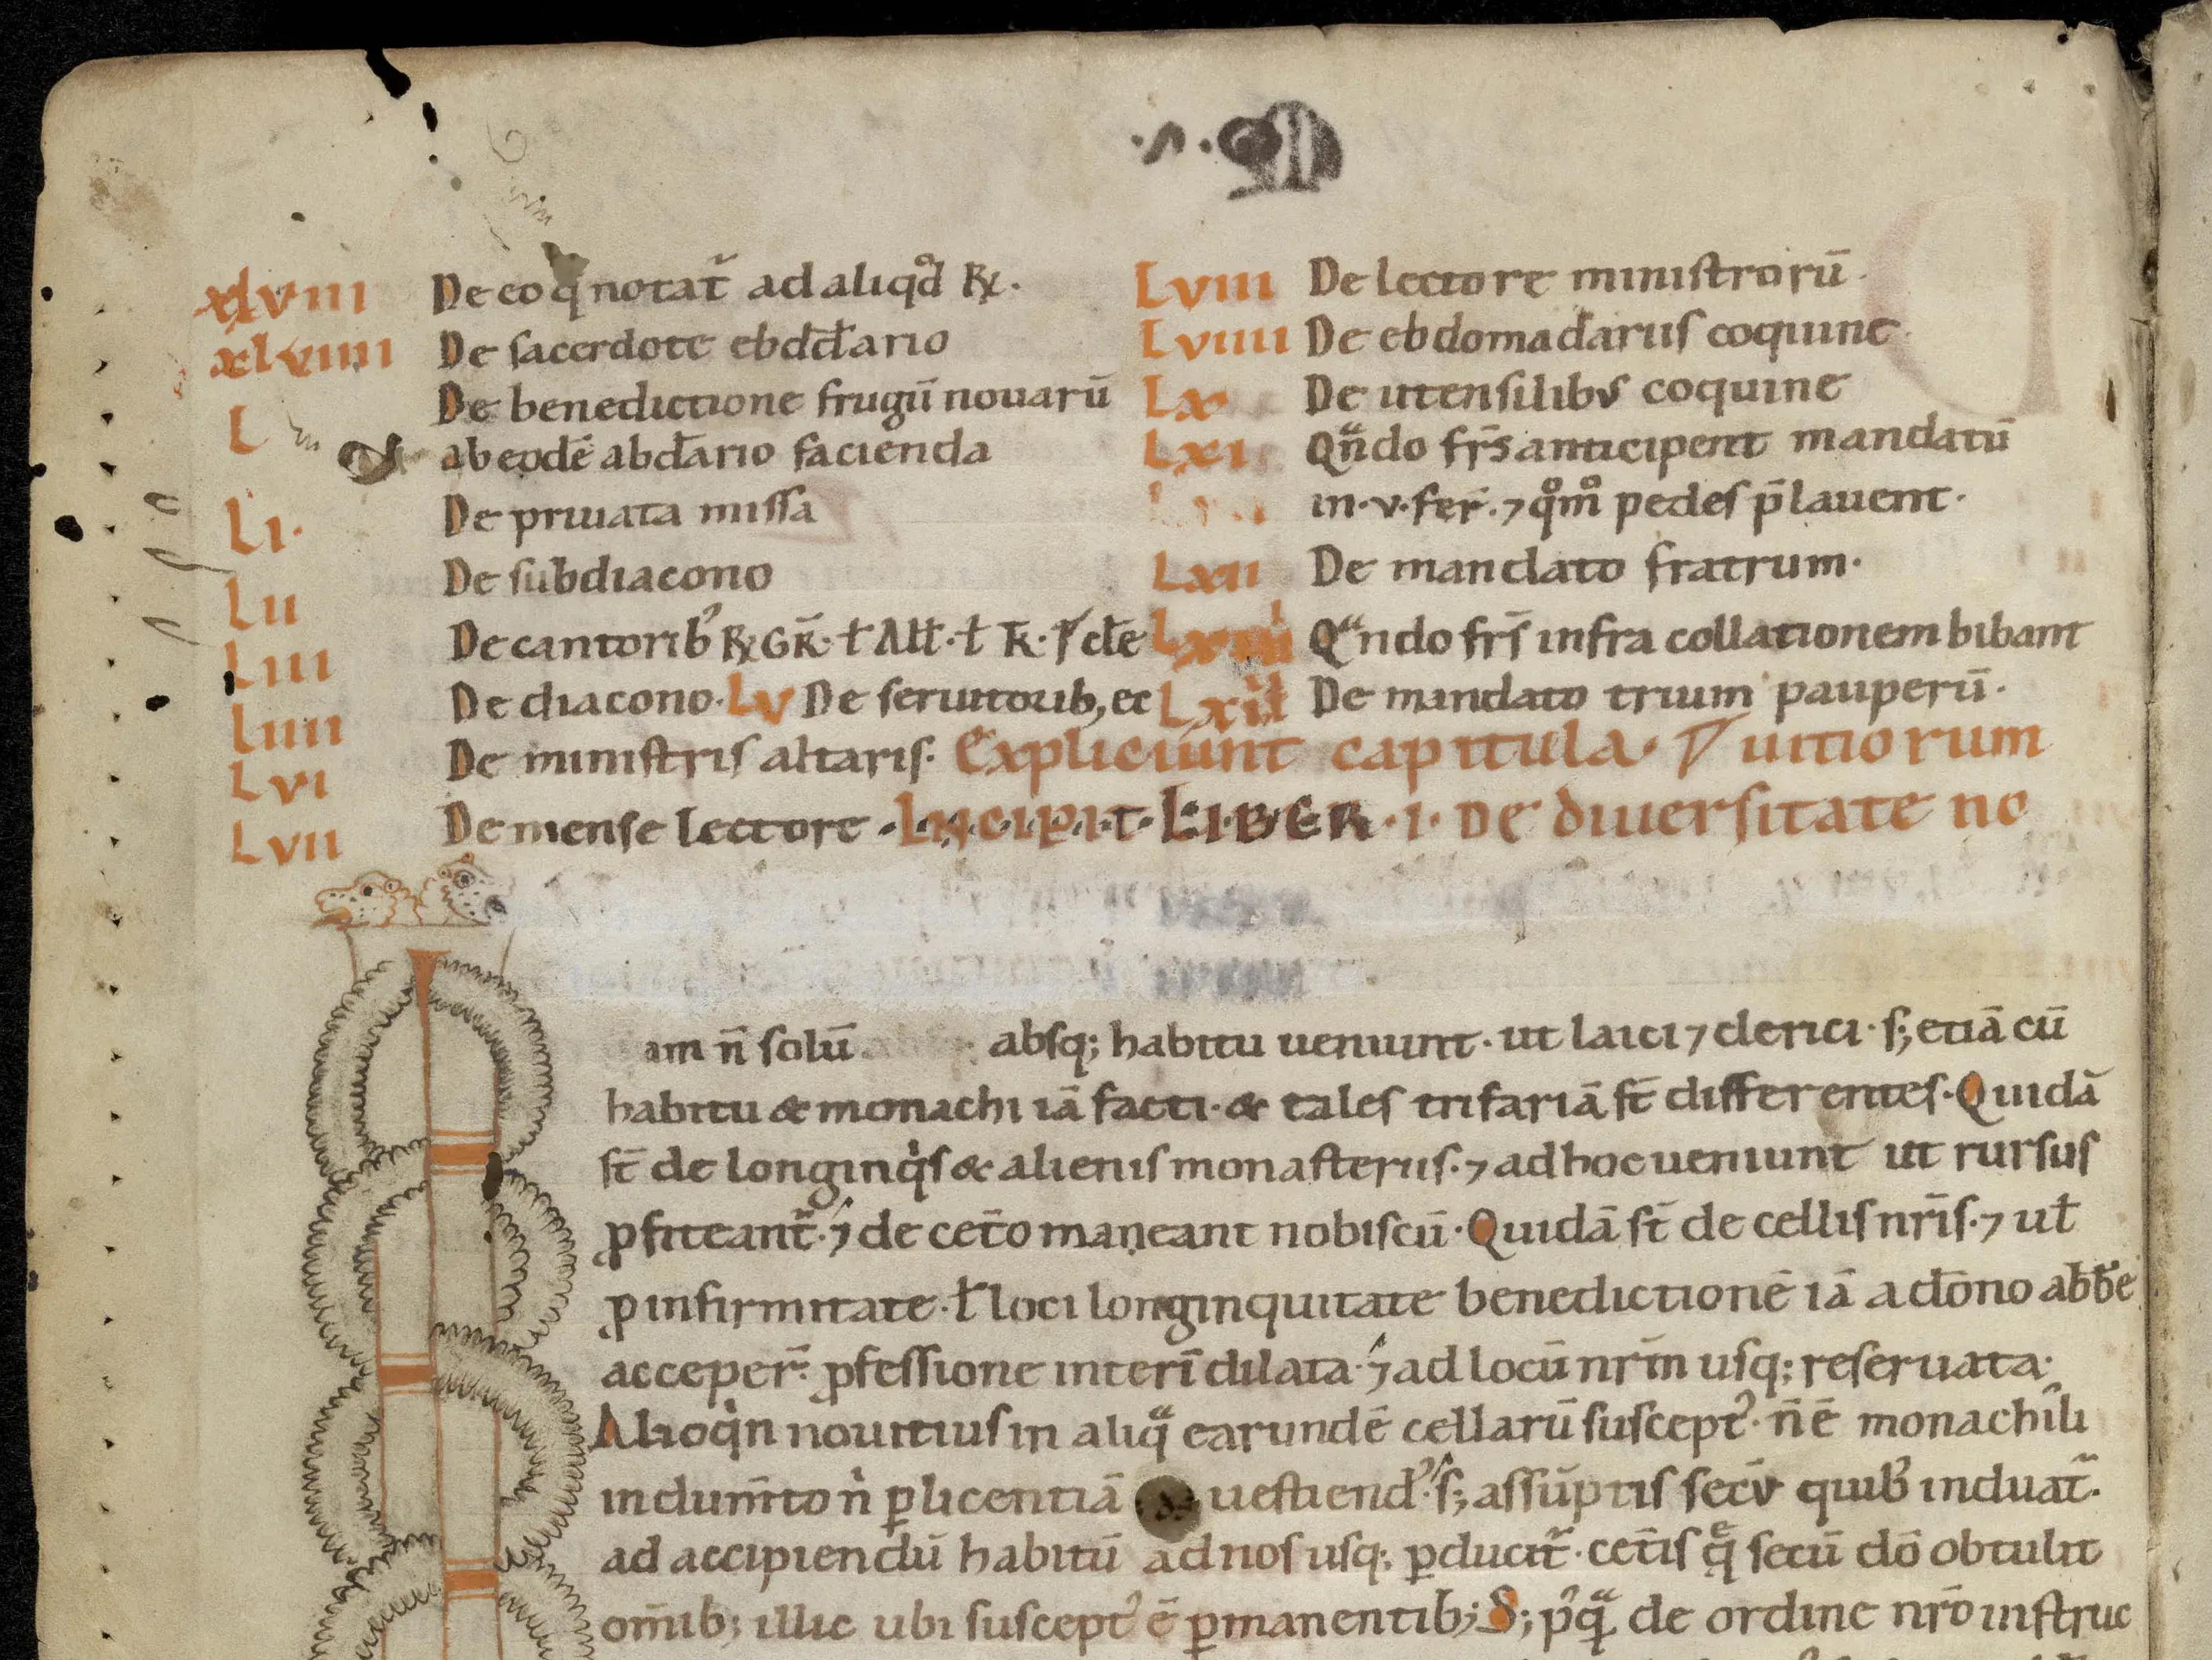 ·S·
xlviii De eo q̄ notat̃ ad aliqd̊ R̷.
xlviiii De sacerdote ebdd̄ario
L De benedictione frugū nouarū
ab eodē abd̄ario facienda
Li. De priuata missa
Lii De subdiacono
Liii De cantorib᾿ R̷ GR̄. ł Ałł. ł R̄.
Liiii De diacono. Lv De seruitorib, ec
Lvi De ministris altaris.
Lvii De mense lectore
Lviii De lectore ministrorū.
Lviiii De ebdomadariis coquine
Lx De utensilibus coquine
Lxi Qᵃ̄ndo fr̄s anticipent mandatū
in. v. fer̄. ⁊ qͦmͦ pedes p̄lauent.
Lxii De mandato fratrum.
Lxiii Qᵃndo fr̄s infra collationem bibant
Lxiiii De mandato trium pauperū.
Expliciunt capitula.
INCIPIT LIBER. I. De diuersitate no
uitiorum
am n̄ solū absq; habitu ueniunt. ut laici ⁊ clerici. s; etiā cū
habitu & monachi iā facti. & tales trifariā st̄ differentes. Quidā
st̄ de longinqͥs & alienis monasteriis. ⁊ ad hoc ueniunt ut rursus
ꝓfiteant̃. ⁊ de cet̄o maneant nobiscū. Quidā st̄ de cellis nr̄is. ⁊ uł
ꝓ infirmitate. ł loci longinquitate benedictionē iā a dōno abb̄e
acceper̄. ꝓfessione interī dilata. ⁊ ad locū nr̄m usq; reseruata.
Alioqͥn nouitius in aliqᵃ earundē cellarū suscept᾿. n̄ ē monachili
indum̄to nͥ ꝑ licentiā uestiend᾿. s; assūptis secū quib᾿ induat̃.
ad accipiendū habitū ad nos usq; ꝑducit̃. cet̄is q̨ secū dō obtulit
om̄ib; illic ubi suscept᾿ ē ꝑmanentib; S; p᾿qᵃ de ordine nr̄o instruc